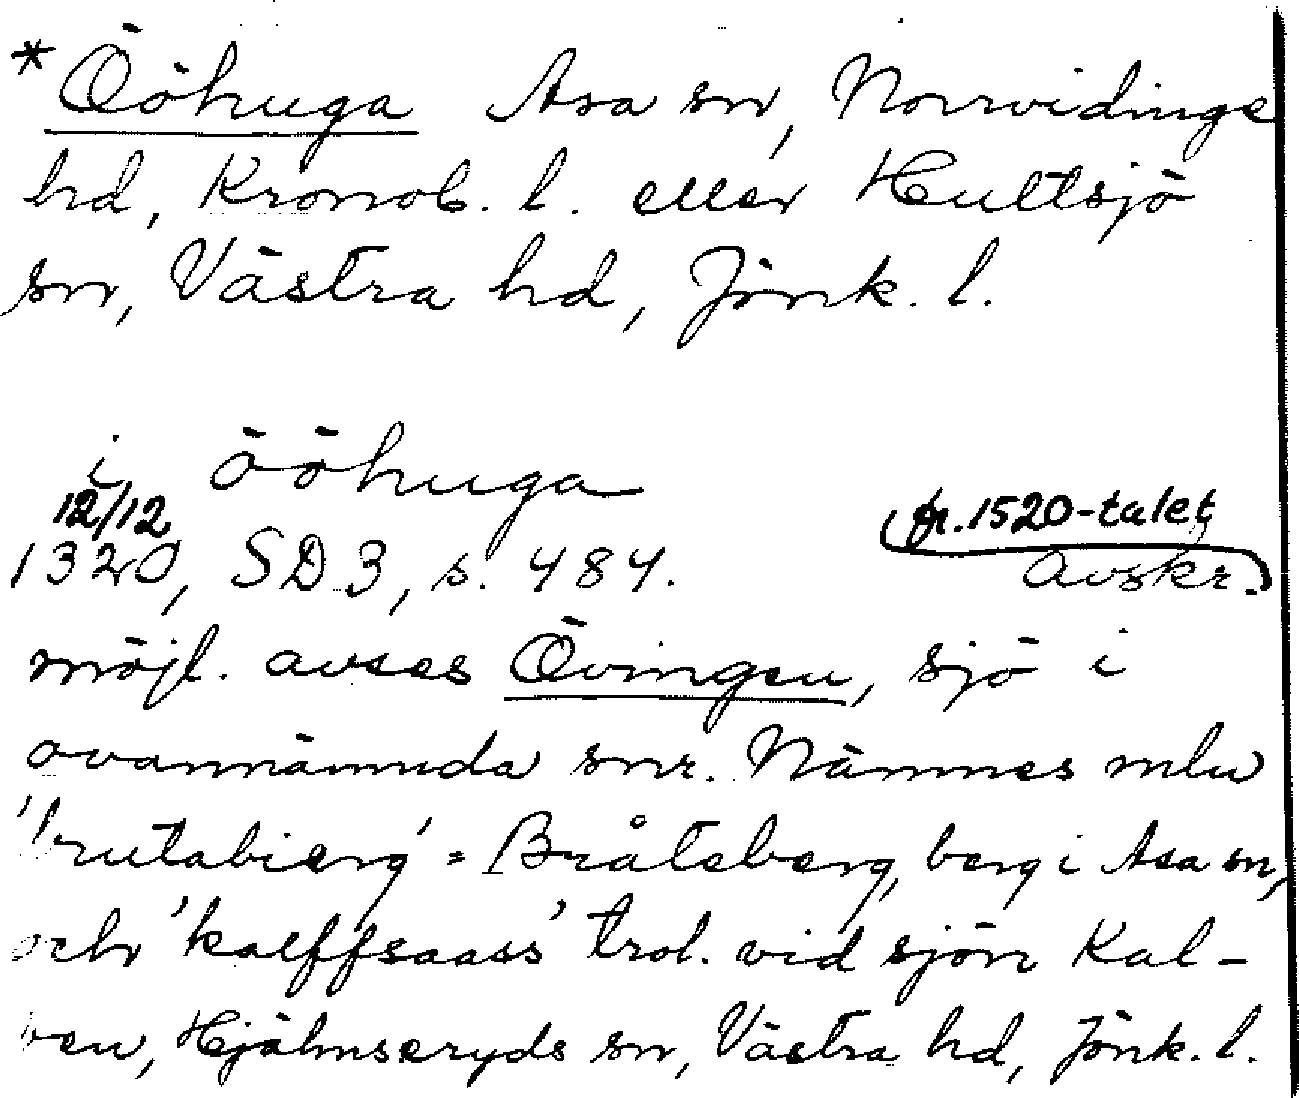 * Ööhuga Asa sn, Norrvidinge
hd, Kronob. l. eller Hultsjö
sn, Västra hd, Jönk. l.
i ööhuga
12/12 fr. 1520-talet
1320, SD 3, s. 484. Avskr.
möjl. avses Övingen, sjö i
ovannämnda snr. Nämnes mln
'brutabierg' = Bråteberg, berg i Asa sn,
och 'kalffsaass' trol. vid sjön Kal-
ven, Hjälmseryds sn, Västra hd, Jönk. l.